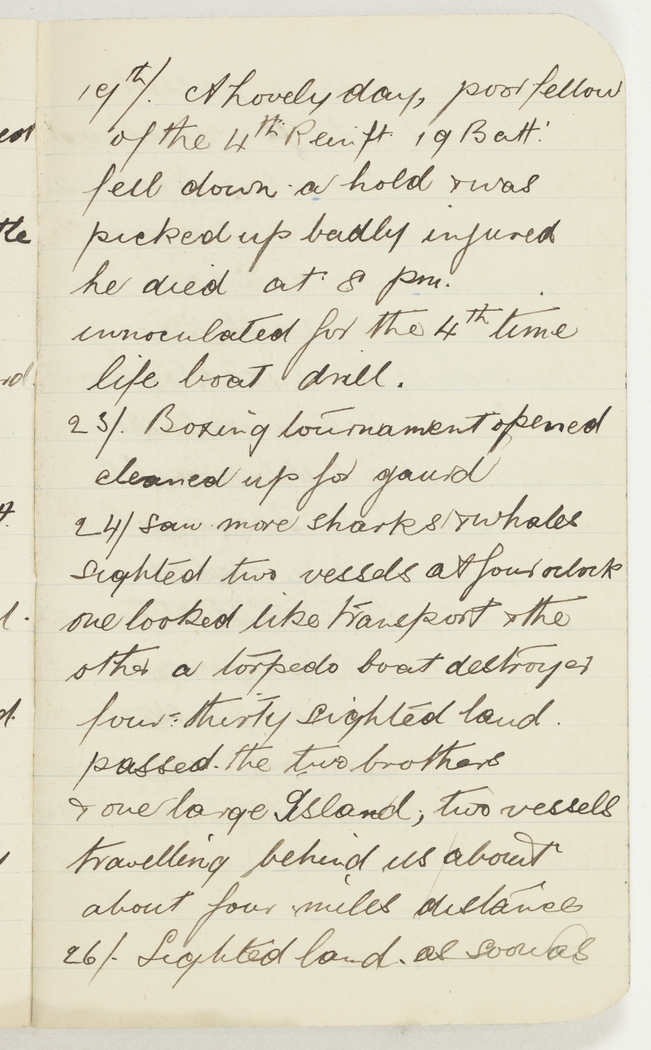 19th/. A lovely day, poor fellow
of the 4th Reinft 19 Batt.
fell down a hold & was
picked up badly injured
he died at 8 pm.
innoculated for the 4th time
life boat drill.
23/. Boxing tournament opened
cleaned up for gaurd
24/ Saw more sharks & whales
sighted two vessels at four oclock
one looked like transport & the
other a torpedo boat destroyer
four-thirty sighted land.
passed the two brothers
& one large Island, two vessels
travelling behind us about
about four miles distance
26/. Sighted land. as soon as